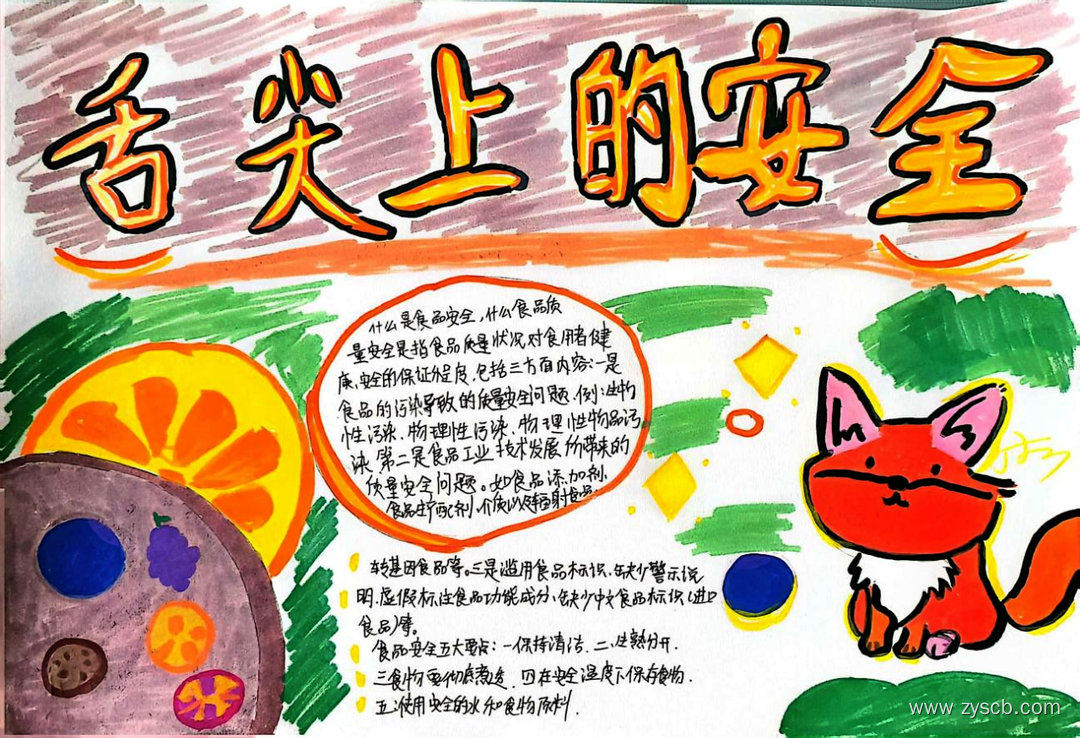 舌尖上的安全
什么是食品安全,什么食品质
量安全是指食品质量状况对食用者健
康、安全的保证程度,包括三方面内容:一是
食品的污染导致的质量安全问题.例:生物
性污染、物理性污染、物理性物品污
读.第二是食品工业技术发展所带来的
质量安全问题。如食品添加剂、
食品生产配剂、介质以及辐射食品、
转基因食品等。三是滥用食品标识、缺少警示说
明.虚假标注食品功能成分、缺少中文食品标识(进口
食品)等。
食品安全五大要点:一保持清洁.二.生熟分开.
三食物要彻底煮透.四在安全温度下保存食物.
五:使用安全的水和食物原料.
www.zyscb.com